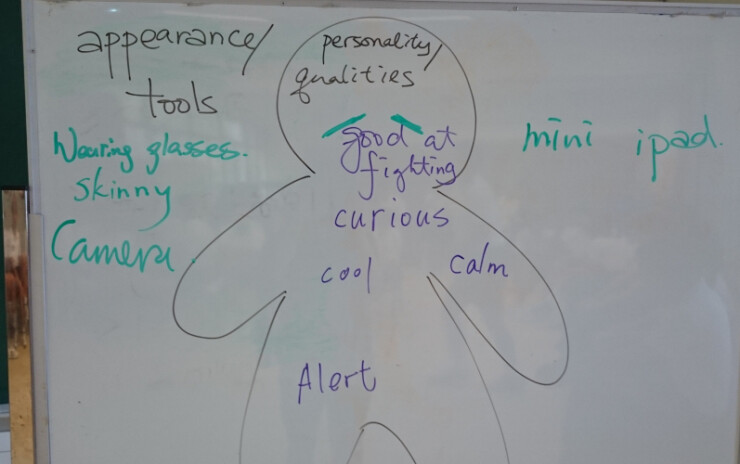 appearance/
tools
Wearing glasses.
skinny
Camera.
personality/
qualities
good at
fighting
curious
cool
calm
Alert
mini ipad.